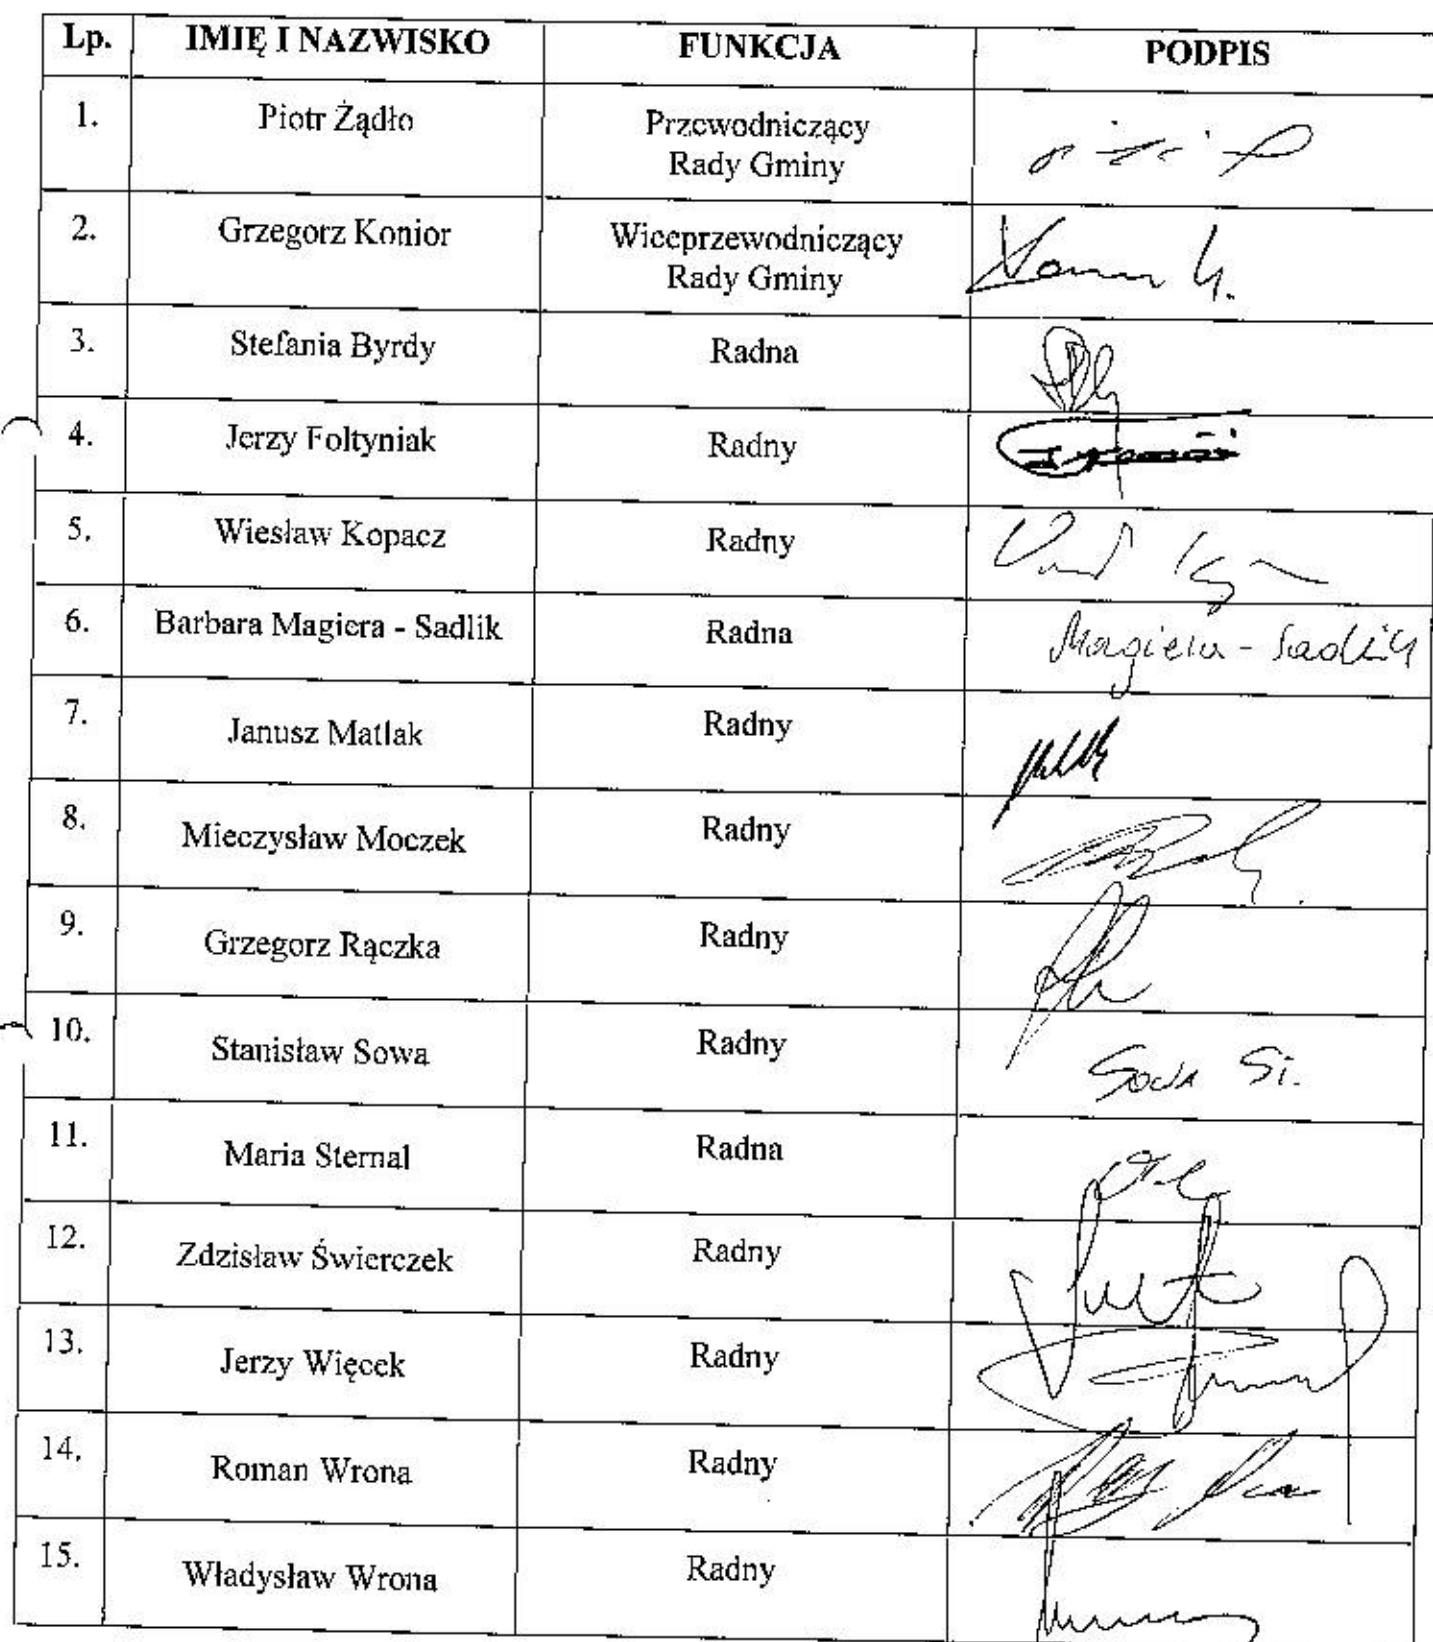 Lp. IMIĘ I NAZWISKO FUNKCJA PODPIS
1. Piotr Żądło Przewodniczący
Rady Gminy
2. Grzegorz Konior Wiceprzewodniczący
Rady Gminy
3. Stefania Byrdy Radna
4. Jerzy Foltyniak Radny
5. Wiesław Kopacz Radny
6. Barbara Magiera - Sadlik Radna Magiera - Sadlik
7. Janusz Matlak Radny
8. Mieczysław Moczek Radny
9. Grzegorz Rączka Radny
10. Stanisław Sowa Radny Sowa St.
11. Maria Sternal Radna
12. Zdzisław Świerczek Radny
13. Jerzy Więcek Radny
14. Roman Wrona Radny
15. Władysław Wrona Radny